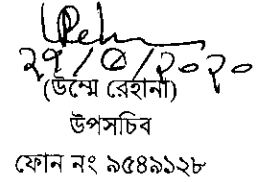 ২৭/৫/২০২০
(উম্মে রেহানা)
উপসচিব
ফোন নং ৯৫৪৯১২৮